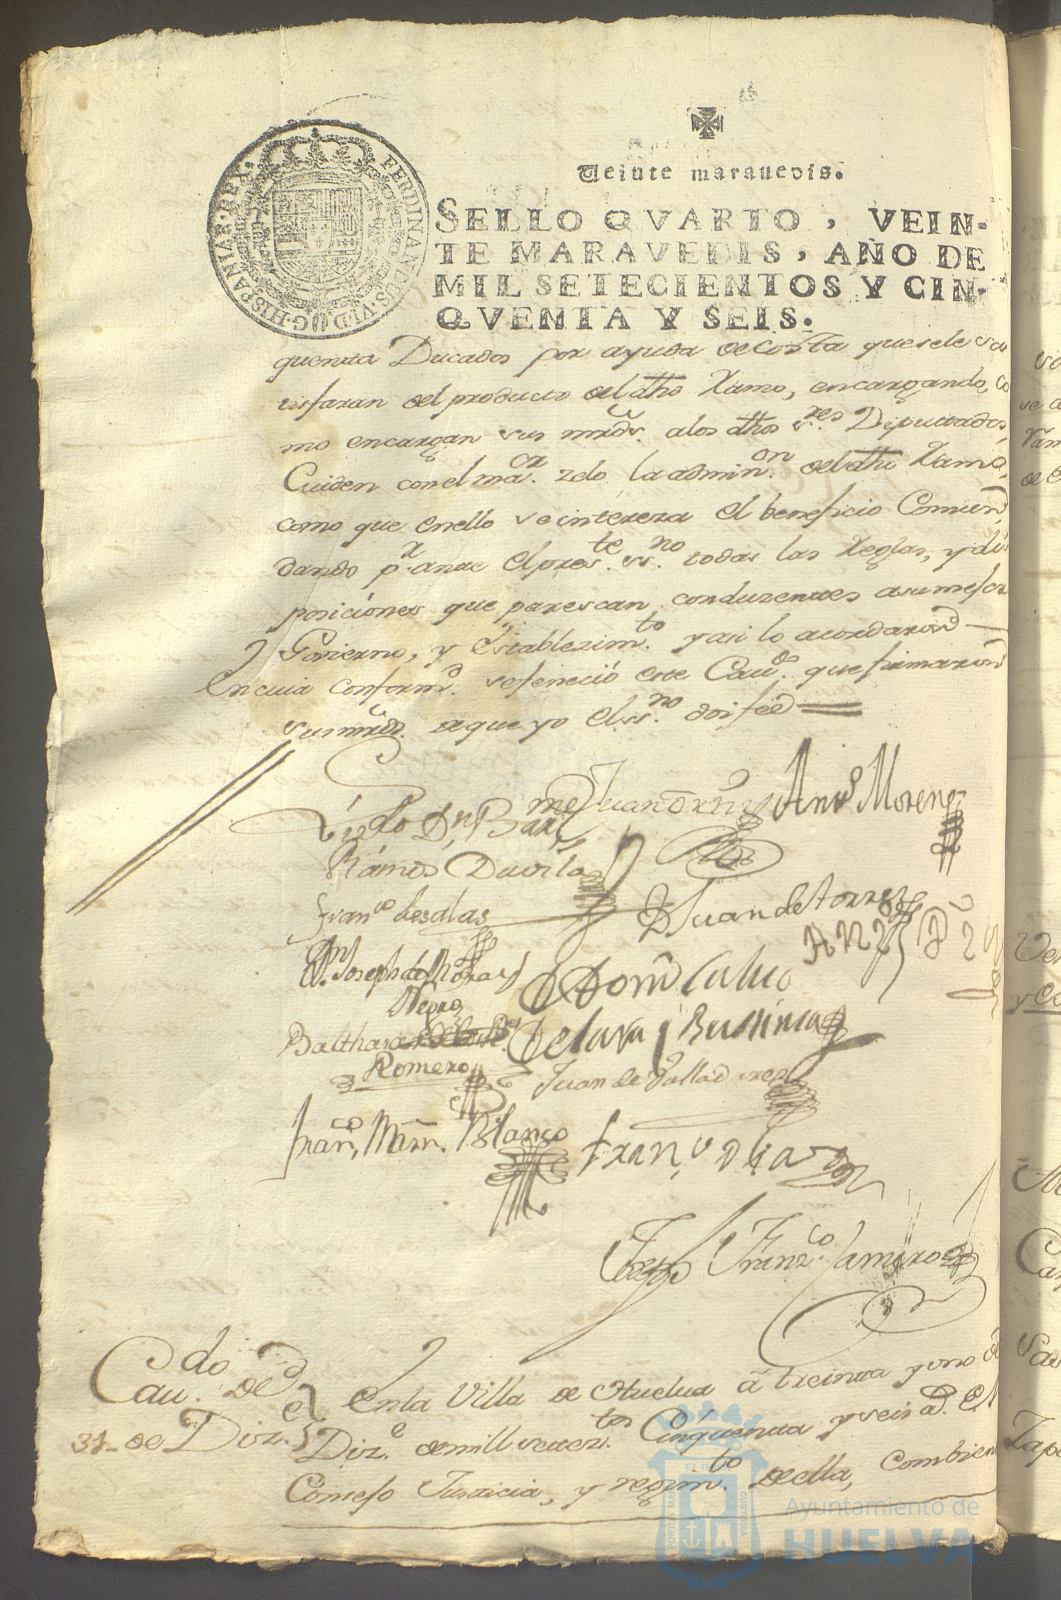 FERDINANDUS·VI·D·G·HISPANIAR·REX·
Veinte marauedis.
SELLO QVARTO, VEIN-
TE MARAVEDIS, AÑO DE
MIL SETECIENTOS Y CIN-
QVENTA Y SEIS.
quenta Ducados por ayuda de costa que sele sa
tisfaran del producto del dho Ramo, encargando, co
mo encargan sus mrds. alos dhos s.res Diputados,
Cuiden con el ma.or zelo la admin.on del dho Ramo,
como que en ello se intereza el beneficio Comun,
dando p.r ante el pres.te ss.no todas las Reglas, y dis
posiciones que parescan conduzentes asu mejor
Govierno, y Establezim.to y asi lo acordaron
En cuia conform.d se feneció este Cau.do que firmaron
sus mrds. de que yo el ss.no doi feé
Lizdo Dn. Barme
Ramos Davila
Juan Ortiz
Anto Moreno
Franco de salas
D Juan de torres
Dn. Joseph de Mora y
Negro
Domo Calvo
Balthasar
Romero
De lara y Bustinza
Juan de Valladares
Franco, Mrn. Blanco
Fran.co Diaz
Franz.co Jamiro
Cau.do de
31- de Diz.e
En la Villa de Huelua á treinta y uno de
Diz.e de mill setez.tos Cinquenta y seis a.s El
Consejo Justicia, y regim.to de ella, combien
Ayuntamiento de
HUELVA